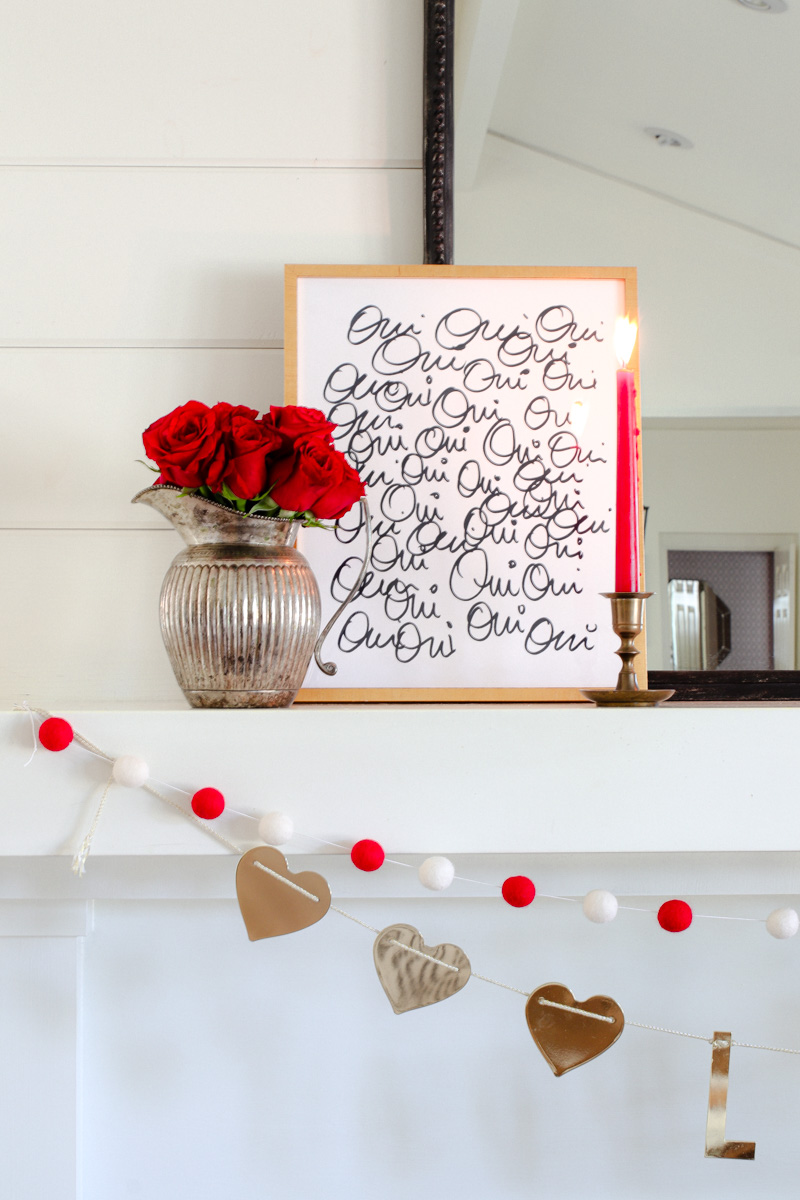 Oui Oui Oui
Oui Oui
Oui Oui
Oui Oui Oui Oui
Oui
Oui Oui Oui Oui
Oui Oui Oui Oui
Oui Oui Oui
Oui Oui Oui Oui
Oui Oui
Oui Oui Oui
Oui Oui
Oui Oui Oui
Oui Oui
L